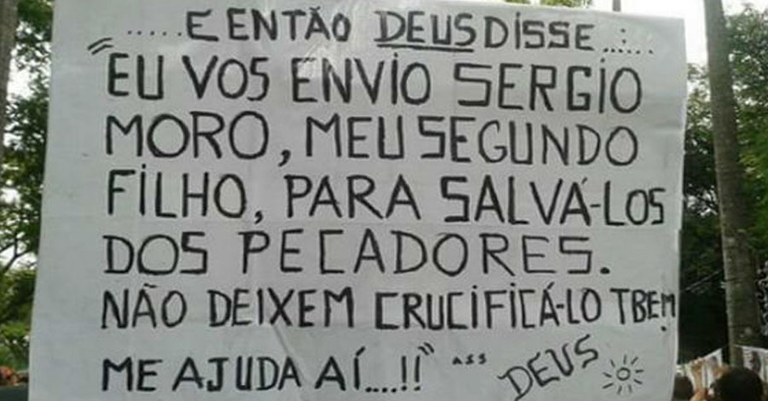 .....E ENTÃO DEUS DISSE...:...
"EU VOS ENVIO SERGIO
MORO, MEU SEGUNDO
FILHO, PARA SALVÁ-LOS
DOS PECADORES.
NÃO DEIXEM CRUCIFICÁ-LO TBEM
ME AJUDA AÍ....!!" ASS DEUS